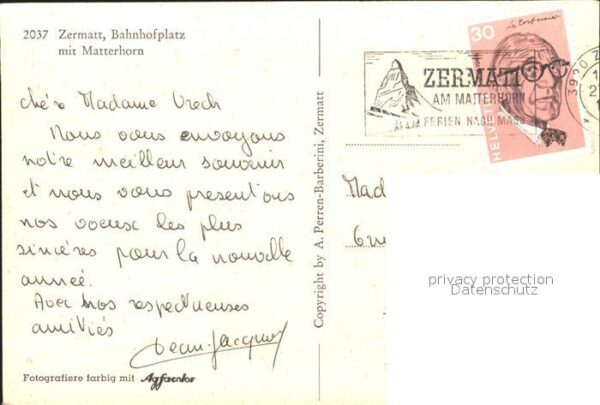 2037 Zermatt, Bahnhofplatz
mit Matterhorn
chère Madame
Nous vous envoyons
notre meilleur souvenir
et nous vous presentons
nos voeux les plus
sincères pour la nouvelle
année.
Avec nos respectueuses
amitiés
Jean-Jacques
Fotografiere farbig mit Agfacolor
Copyright by A. Perren-Barberini, Zermatt
ZERMATT
AM MATTERHORN
FERIEN NACH MASS
3920 Z
30
Le Corbusier
HELVE
Mad
privacy protection
Datenschutz